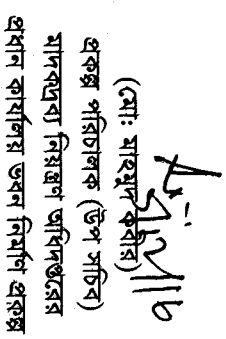 (মোঃ মাহমুদ কবীর)
প্রকল্প পরিচালক (উপ সচিব)
মাদকদ্রব্য নিয়ন্ত্রণ অধিদপ্তরের
প্রধান কার্যালয় ভবন নির্মাণ প্রকল্প